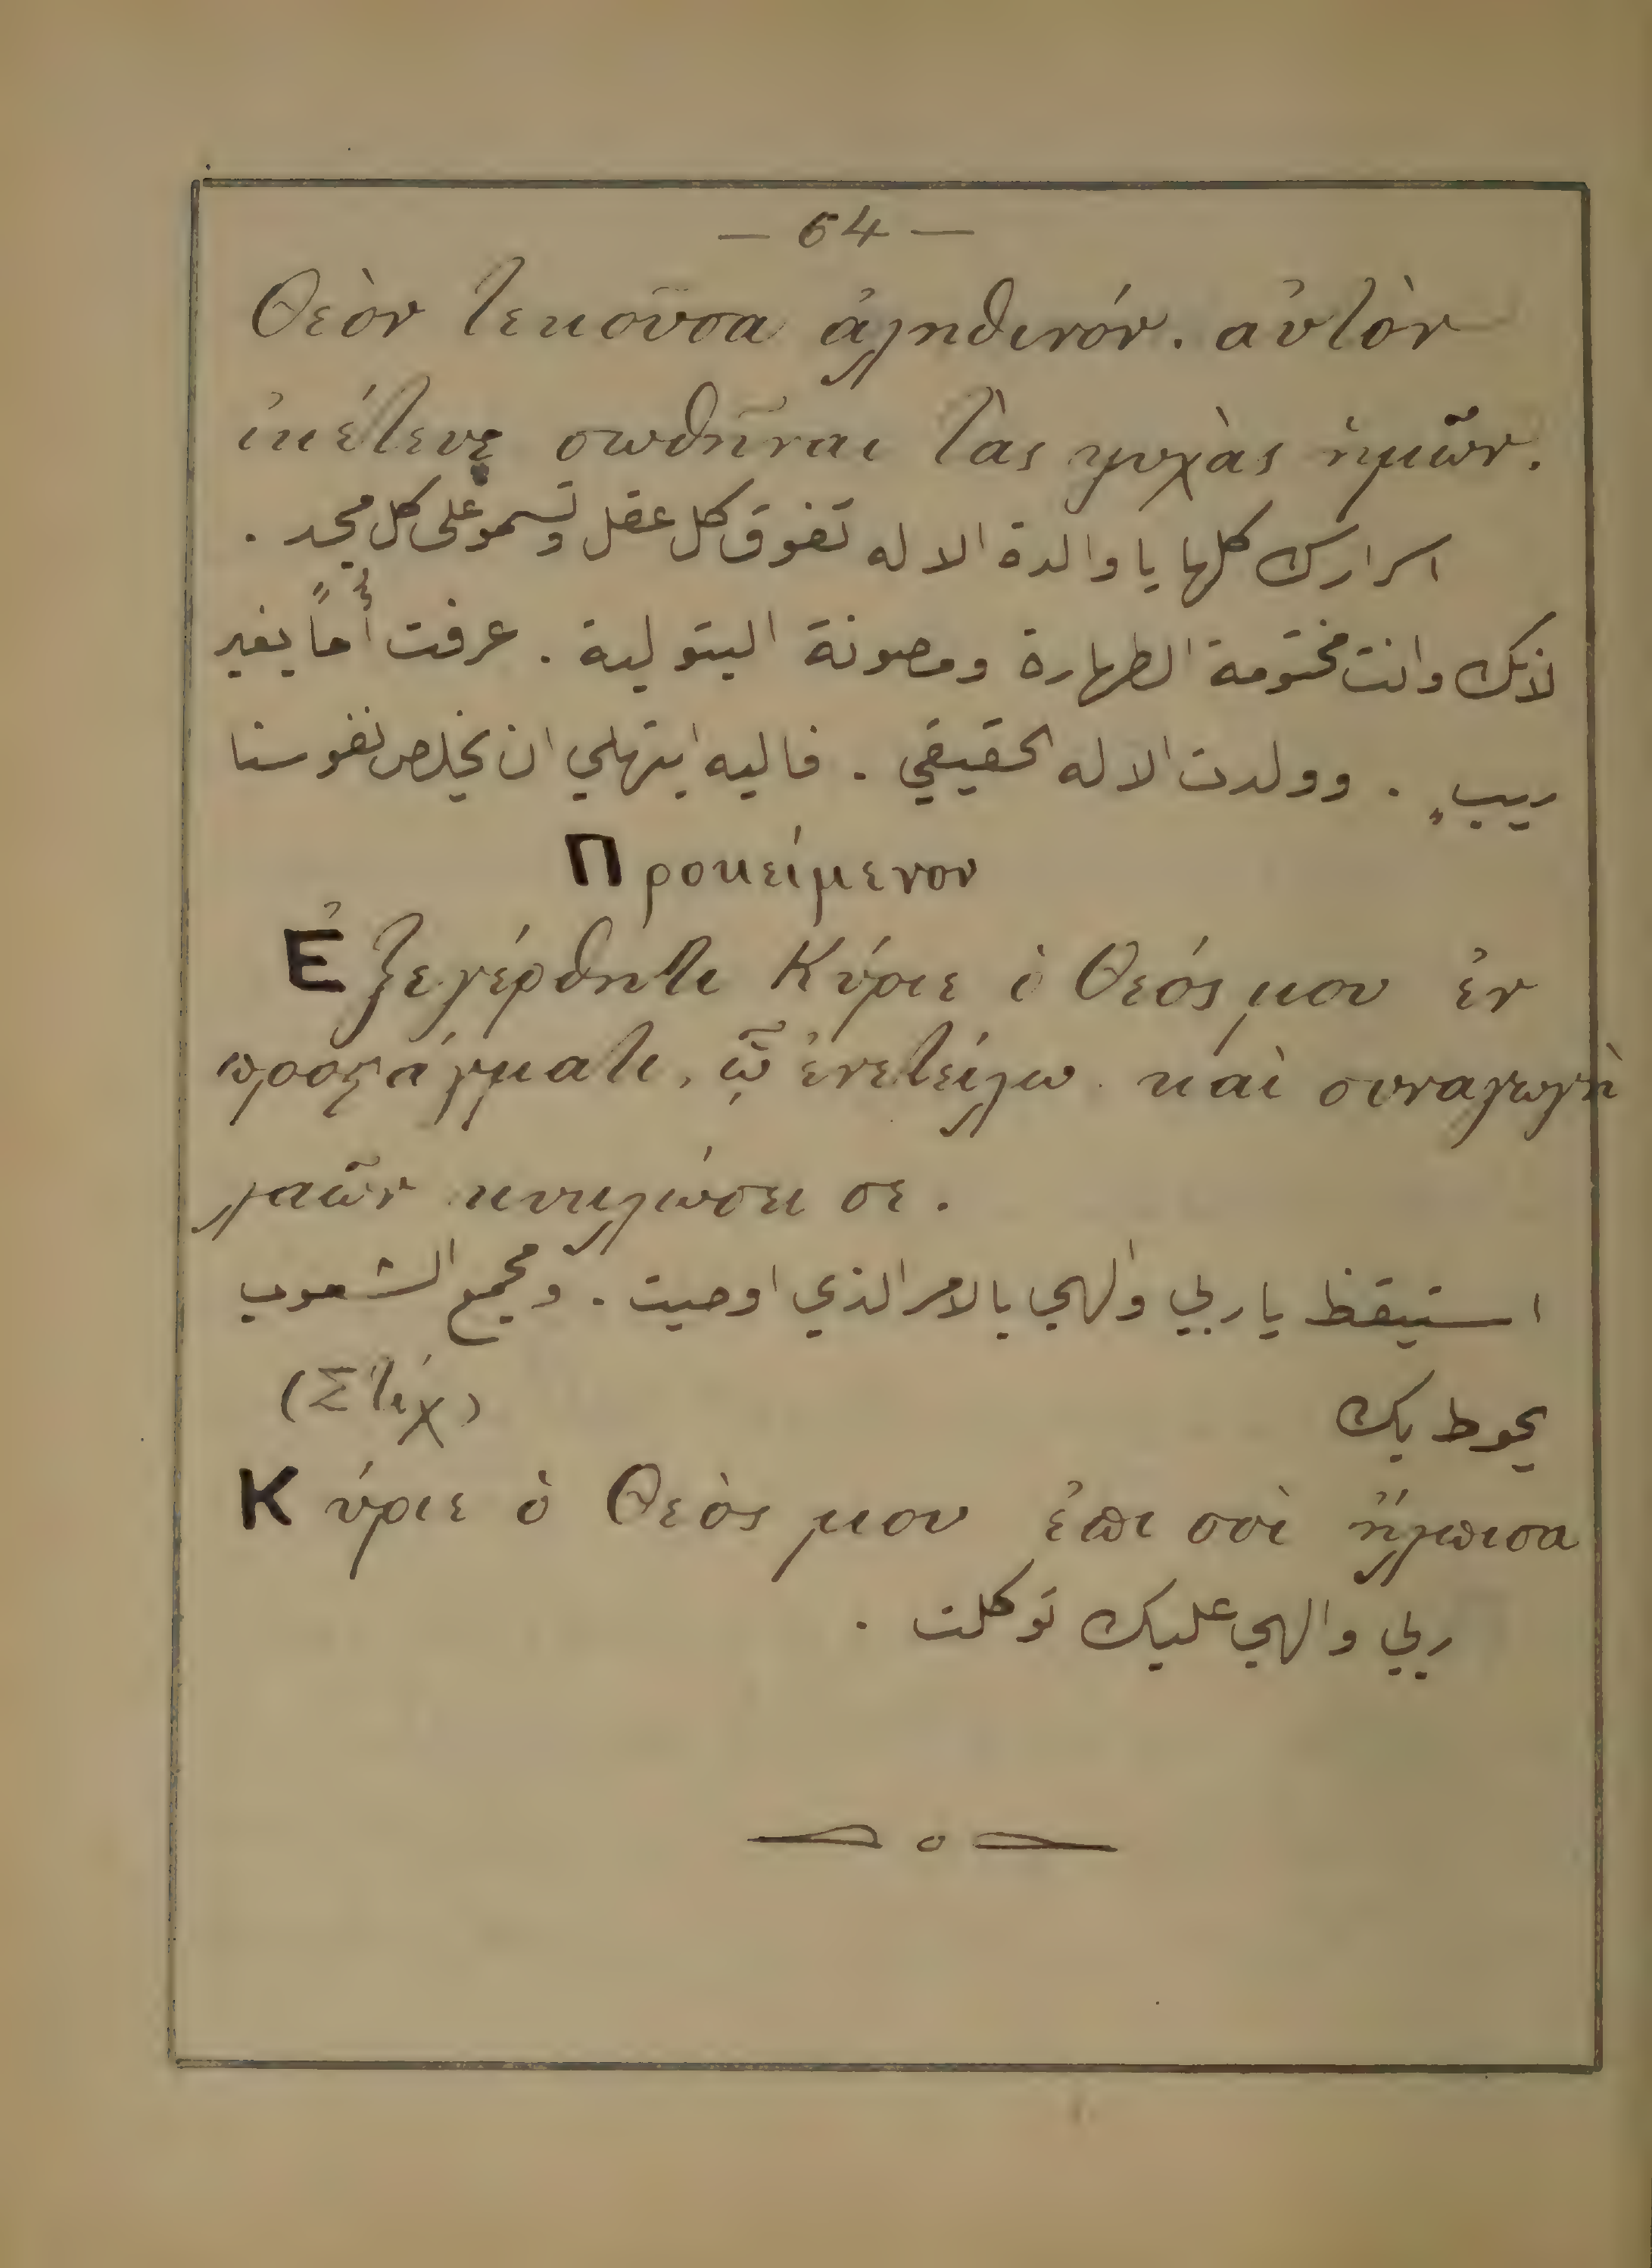 — 64 —
Θεὸν τεκοῦσα ἀληθινόν. αὐτὸν
ἱκέτευε σωθῆναι τὰς ψυχὰς ἡμῶν.
اسرارك كلها يا والدة الاله تفوق كل عقل وتسمو على كل مجد .
لانك وانت مختومة الطهارة ومصونة البتولية . عرفت أُماً بغير
ريبٍ . وولدت الاله الحقيقي . فاليه ابتهلي ان يخلص نفوسنا
Προκείμενον
Ἐξεγέρθητι Κύριε ὁ Θεός μου ἐν
προςάγματι, ᾧ ἐνετείλω. καὶ συναγωγὴ
λαῶν κυκλώσει σε.
استيقظ يا ربي والهي بالامر الذي اوصيت . ومجمع الشعوب
يحوط بك (Στίχ)
Κύριε ὁ Θεὸς μου ἐπι σοὶ ἤλπισα
ربي والهي عليك توكلت .